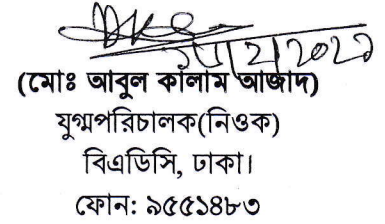 (মোঃ আবুল কালাম আজাদ)
যুগ্মপরিচালক(নিওক)
বিএডিসি, ঢাকা।
ফোন: ৯৫৫১৪৮৩